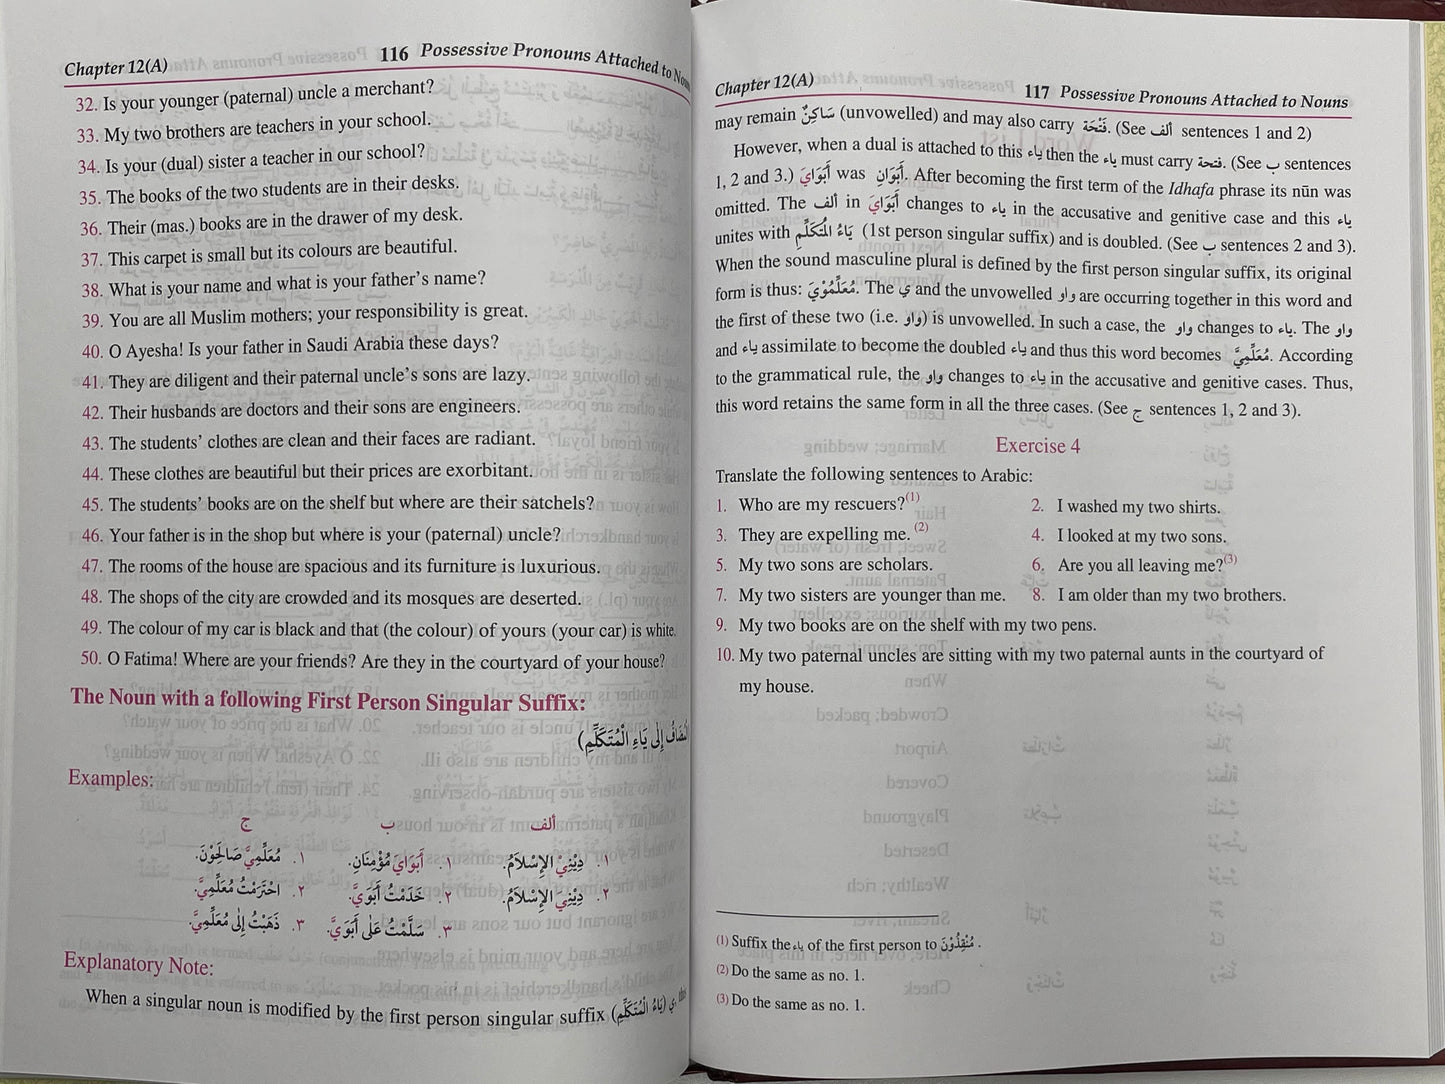 Chapter 12(A) 116 Possessive Pronouns Attached to Nouns
32. Is your younger (paternal) uncle a merchant?
33. My two brothers are teachers in your school.
34. Is your (dual) sister a teacher in our school?
35. The books of the two students are in their desks.
36. Their (mas.) books are in the drawer of my desk.
37. This carpet is small but its colours are beautiful.
38. What is your name and what is your father's name?
39. You are all Muslim mothers; your responsibility is great.
40. O Ayesha! Is your father in Saudi Arabia these days?
41. They are diligent and their paternal uncle's sons are lazy.
42. Their husbands are doctors and their sons are engineers.
43. The students' clothes are clean and their faces are radiant.
44. These clothes are beautiful but their prices are exorbitant.
45. The students' books are on the shelf but where are their satchels?
46. Your father is in the shop but where is your (paternal) uncle?
47. The rooms of the house are spacious and its furniture is luxurious.
48. The shops of the city are crowded and its mosques are deserted.
49. The colour of my car is black and that (the colour) of yours (your car) is white.
50. O Fatima! Where are your friends? Are they in the courtyard of your house?
The Noun with a following First Person Singular Suffix:
إِلَى يَاءِ الْمُتَكَلِّمِ)
Examples:
ألف ب ج
١. دِيْنِيْ الإِسْلاَمُ. ١. أَبَوَايَ مُؤْمِنَانِ. ١. مُعَلِّمِيَّ صَالِحُوْنَ.
٢. دِيْنِيَ الإِسْلاَمُ. ٢. خَدَمْتُ أَبَوَيَّ. ٢. احْتَرَمْتُ مُعَلِّمِيَّ.
٣. سَلَّمْتُ عَلَى أَبَوَيَّ. ٣. ذَهَبْتُ إِلَى مُعَلِّمِيَّ.
Explanatory Note:
When a singular noun is modified by the first person singular suffix (يَاءُ الْمُتَكَلِّمِ) ي, this
Chapter 12(A) 117 Possessive Pronouns Attached to Nouns
may remain سَاكِنٌ (unvowelled) and may also carry فَتْحَة. (See ألف sentences 1 and 2)
However, when a dual is attached to this ياء then the ياء must carry فتحة. (See ب sentences
1, 2 and 3.) أَبَوَايَ was أَبَوَانِ. After becoming the first term of the Idhafa phrase its nūn was
omitted. The ألف in أَبَوَايَ changes to ياء in the accusative and genitive case and this ياء
unites with يَاءُ الْمُتَكَلِّمِ (1st person singular suffix) and is doubled. (See ب sentences 2 and 3).
When the sound masculine plural is defined by the first person singular suffix, its original
form is thus: مُعَلِّمُوْيَ. The ي and the unvowelled واو are occurring together in this word and
the first of these two (i.e. واو) is unvowelled. In such a case, the واو changes to ياء. The واو
and ياء assimilate to become the doubled ياء and thus this word becomes مُعَلِّمِيَّ. According
to the grammatical rule, the واو changes to ياء in the accusative and genitive cases. Thus,
this word retains the same form in all the three cases. (See ج sentences 1, 2 and 3).
Exercise 4
Translate the following sentences to Arabic:
1. Who are my rescuers?(1) 2. I washed my two shirts.
3. They are expelling me. (2) 4. I looked at my two sons.
5. My two sons are scholars. 6. Are you all leaving me?(3)
7. My two sisters are younger than me. 8. I am older than my two brothers.
9. My two books are on the shelf with my two pens.
10. My two paternal uncles are sitting with my two paternal aunts in the courtyard of
my house.
(1) Suffix the ياء of the first person to مُنْقِذُوْنَ.
(2) Do the same as no. 1.
(3) Do the same as no. 1.